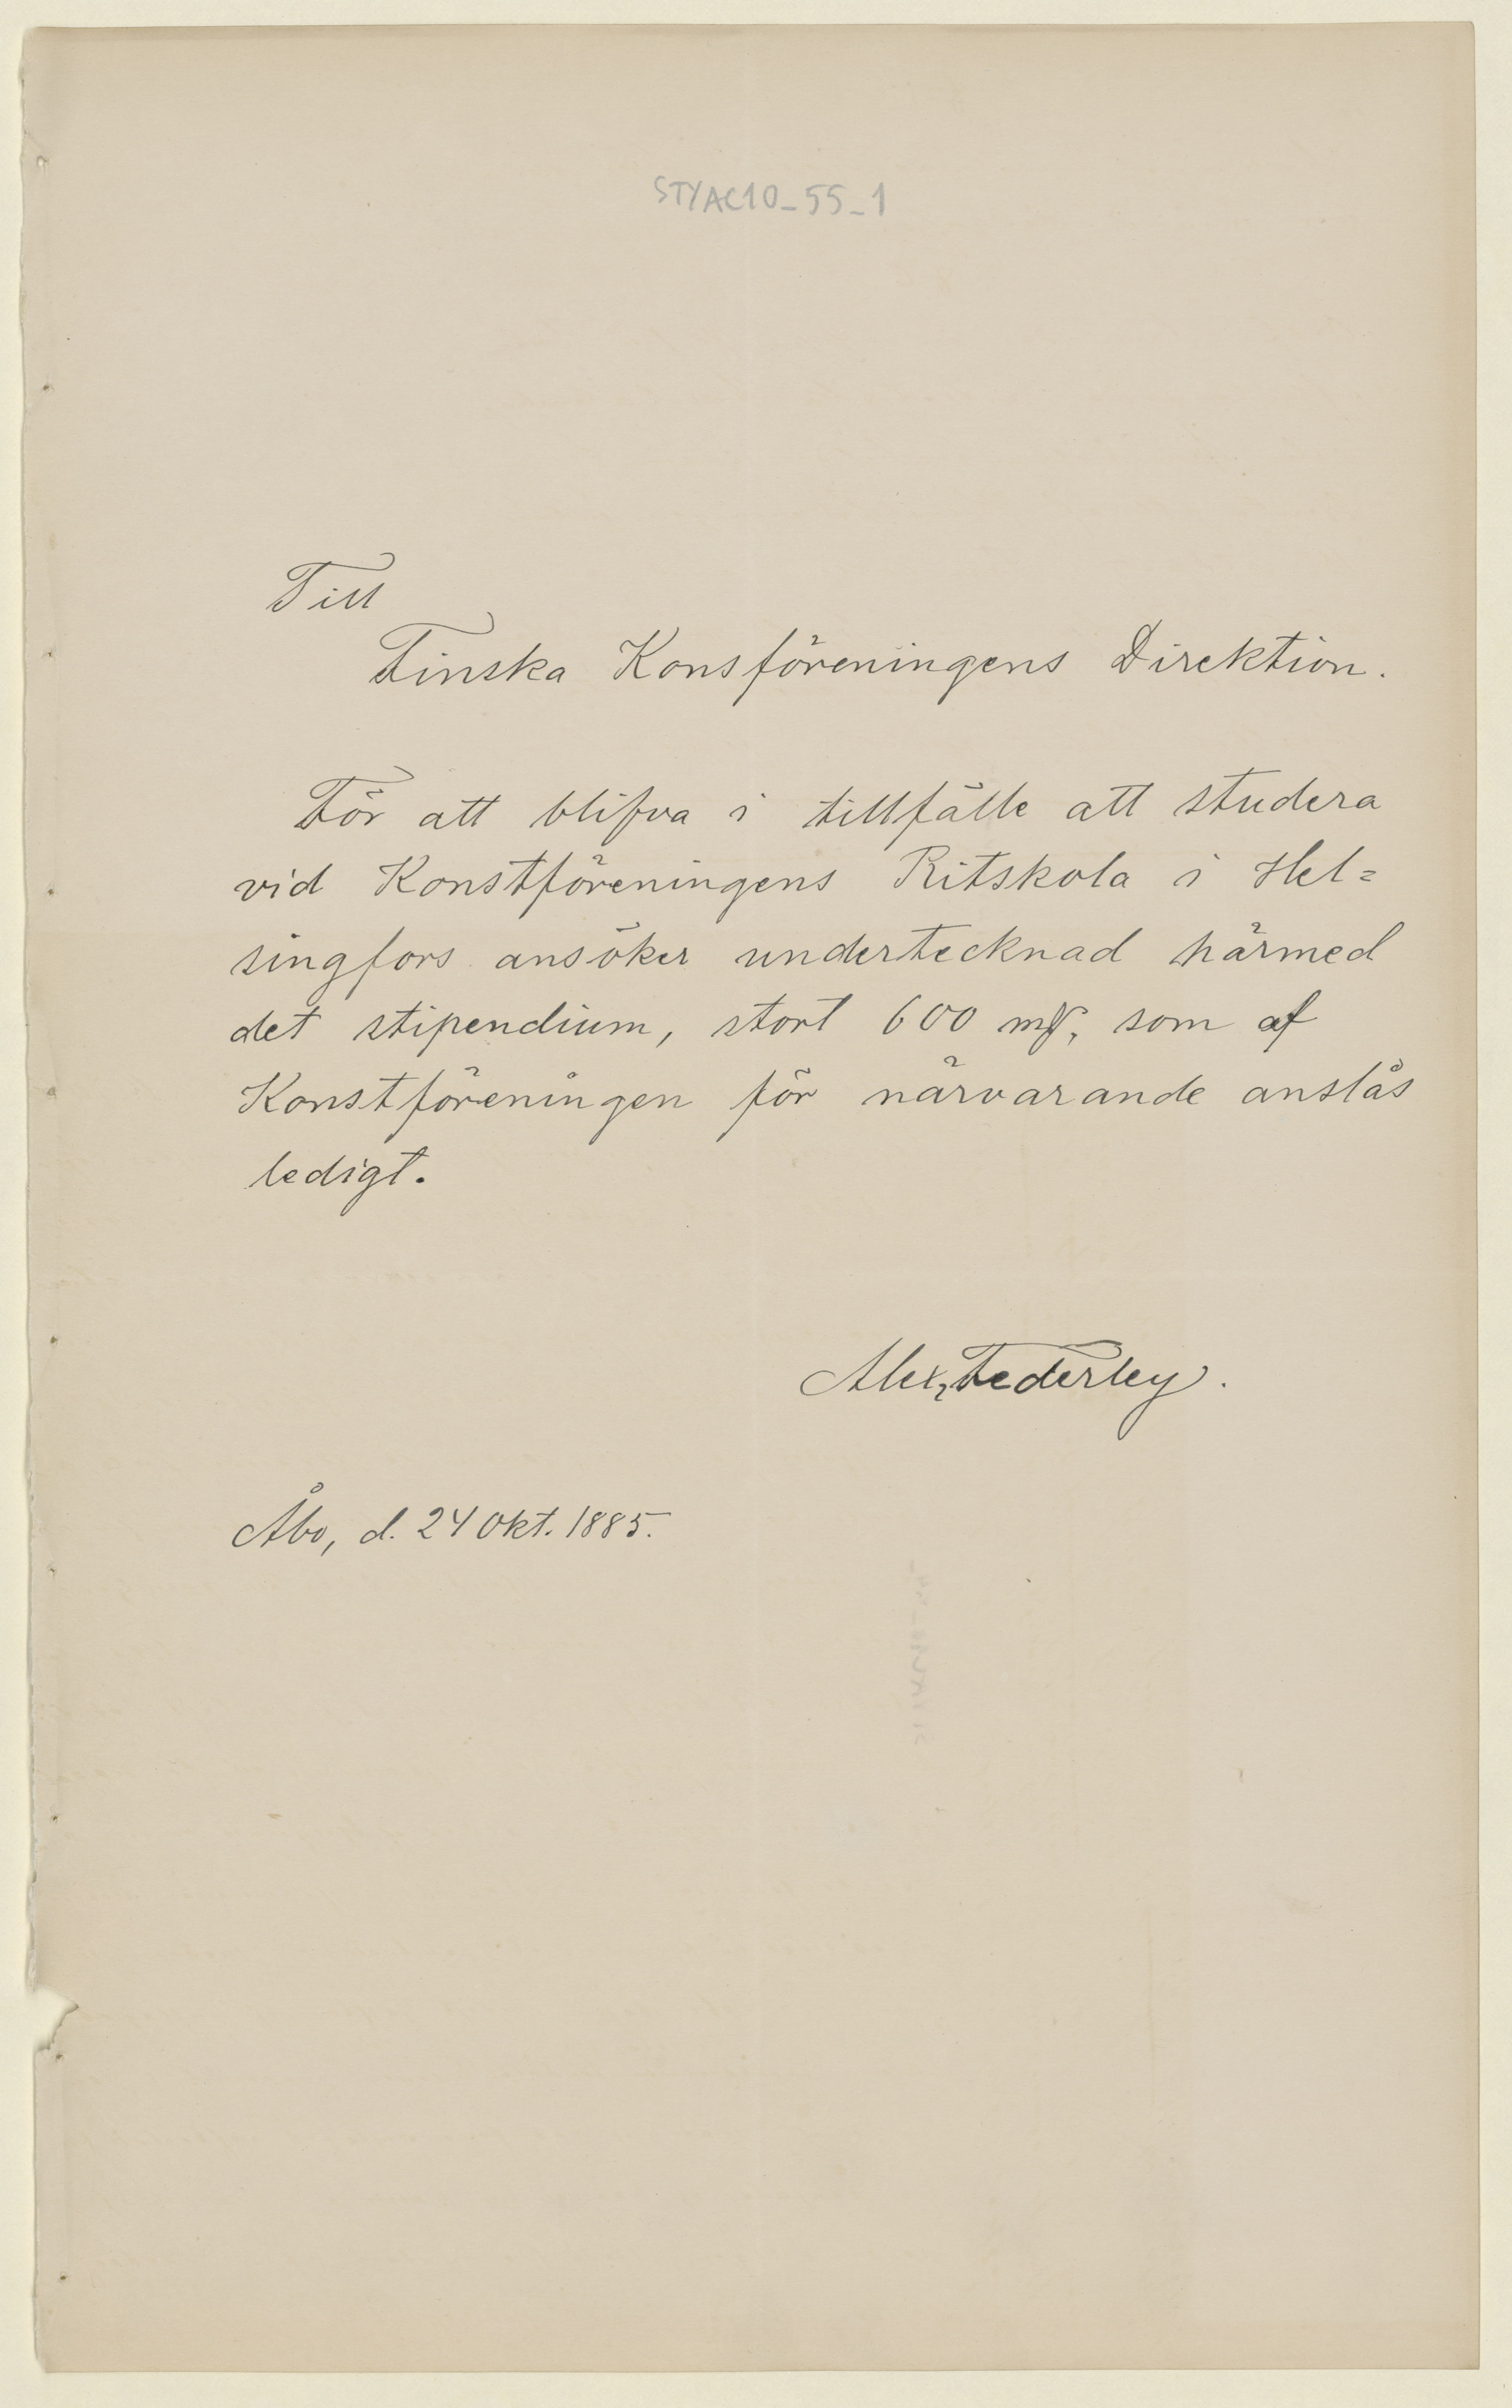 STYAC10_55_1
Till
Finska Konsföreningens Direktion.
För att blifva i tillfälle att studera
vid Konstföreningens Ritskola i Hel=
singfors ansöker undertecknad härmed
det stipendium, stort 600 mk, som af
Konstföreningen för närvarande anslås
ledigt.
Alex, Federley.
Åbo, d. 24 Okt. 1885.